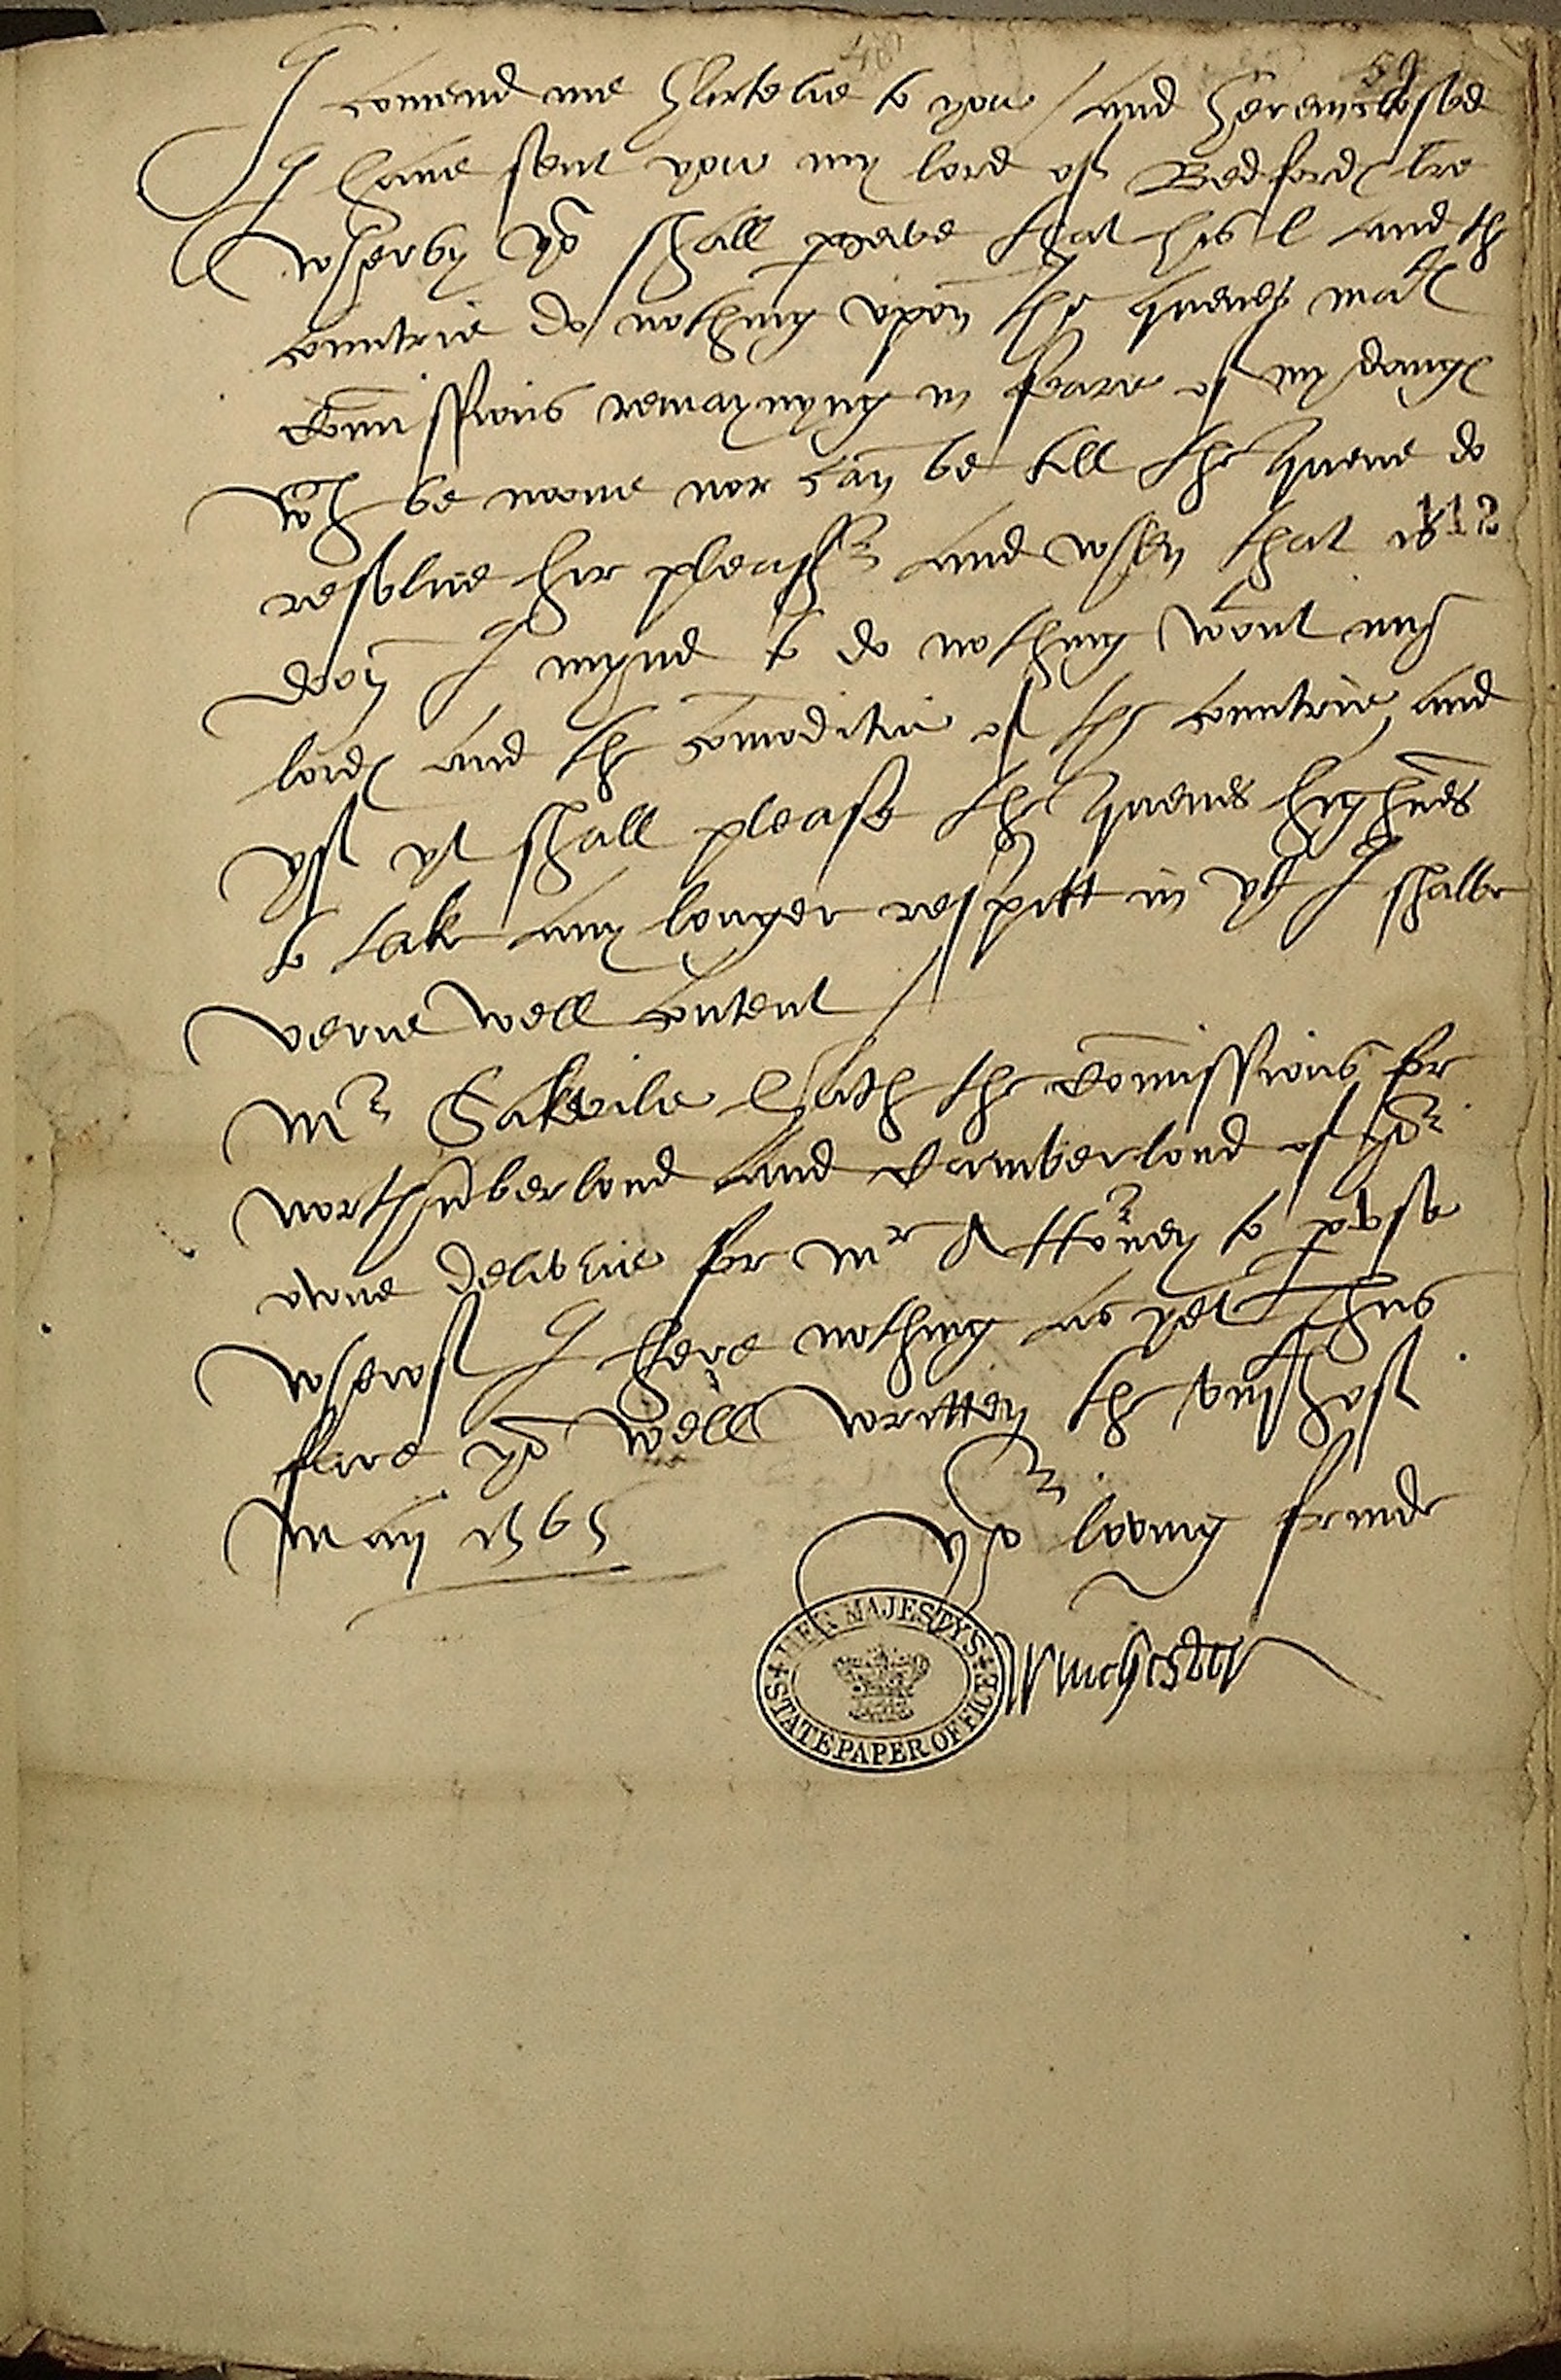 I comend me hartelie to you / and hereinclosed
I haue sent you my lord of Bedford lre
wherby yo shall pceive that his l and the
countrie do nothing vpon the quenes mats
Comissions remaynyng in feare of my doings
wch be noone nor can be till the quene do
resolue her pleassr and when that is
112
doon I mynd to do nothing wout my
lord and the comoditie of the countrie and
yf yt shall please the quenes highnes
to take any longer respitt in yt I shalbe
verie well content /
Mr Sakvile hath the Comissions for
northuberlond and Comberlond of yor
owne deliverie for Mr Attorney to pvse
wherof I here nothing as yet Thus
fare yo well written the of
May 1565
Yor loving frinde
Winchester
HER MAJESTY'S
STATE PAPER OFFICE